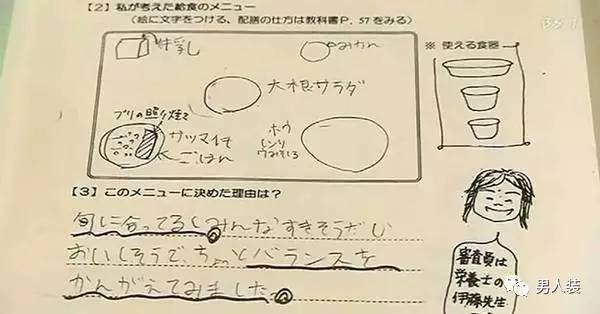 【2】私が考えた給食のメニュー
(絵に文字をつける、配膳の仕方は教科書P.57をみる)
牛乳
みかん
大根サラダ
ブリの照り焼き
サツマイモ
ごはん
ホウ
レンソ
ウみそしる
※ 使える食器
【3】このメニューに決めた理由は？
旬に合ってるしみんなすきそうだし
おいしそうで、ちょっとバランスを
かんがえてみました。
審査員は
栄養士の
伊藤先生
男人装